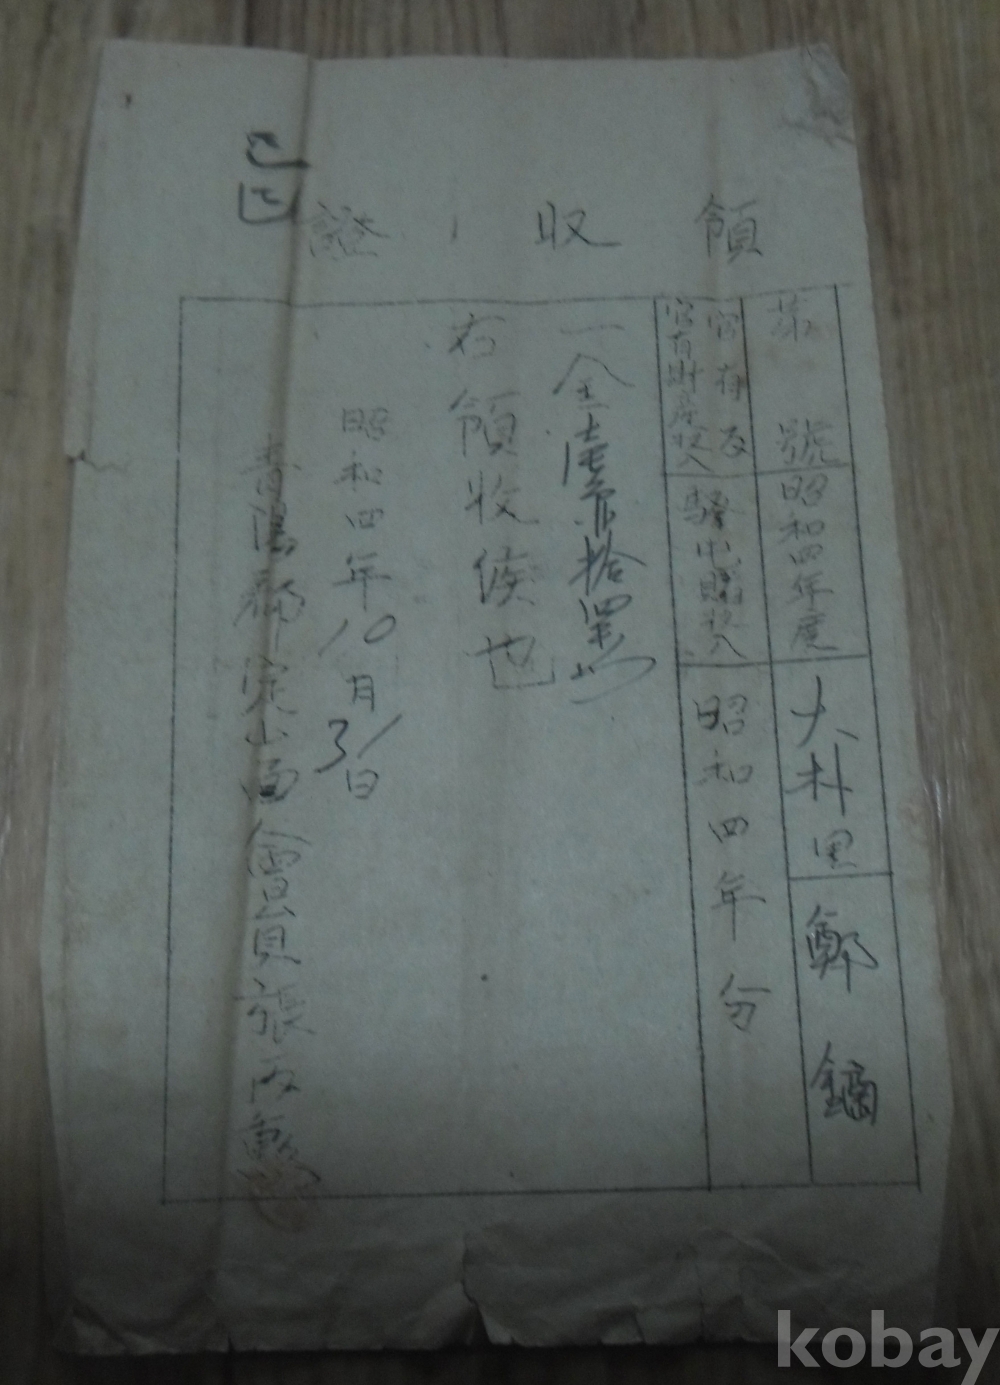 領收證
第 號
昭和四年度
大朴里
鄭鏑
官有
官有財產收入
驛屯賭收入
昭和四年分
一金壹拾四
右領收候也
昭和四年10月31日
郡定山面會員張丙
kobay